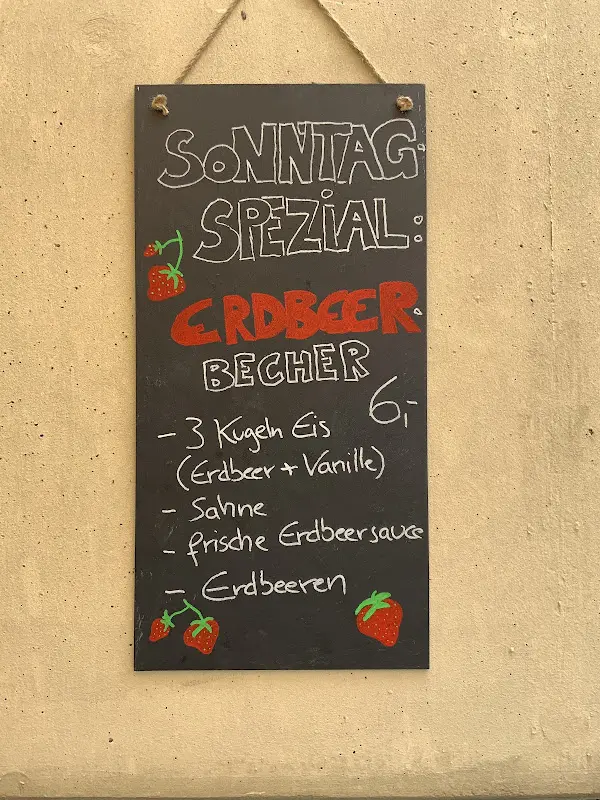 SONNTAG
SPEZIAL:
ERDBEER
BECHER
6,-
- 3 Kugeln Eis
(Erdbeer + Vanille)
- Sahne
- frische Erdbeersauce
- Erdbeeren